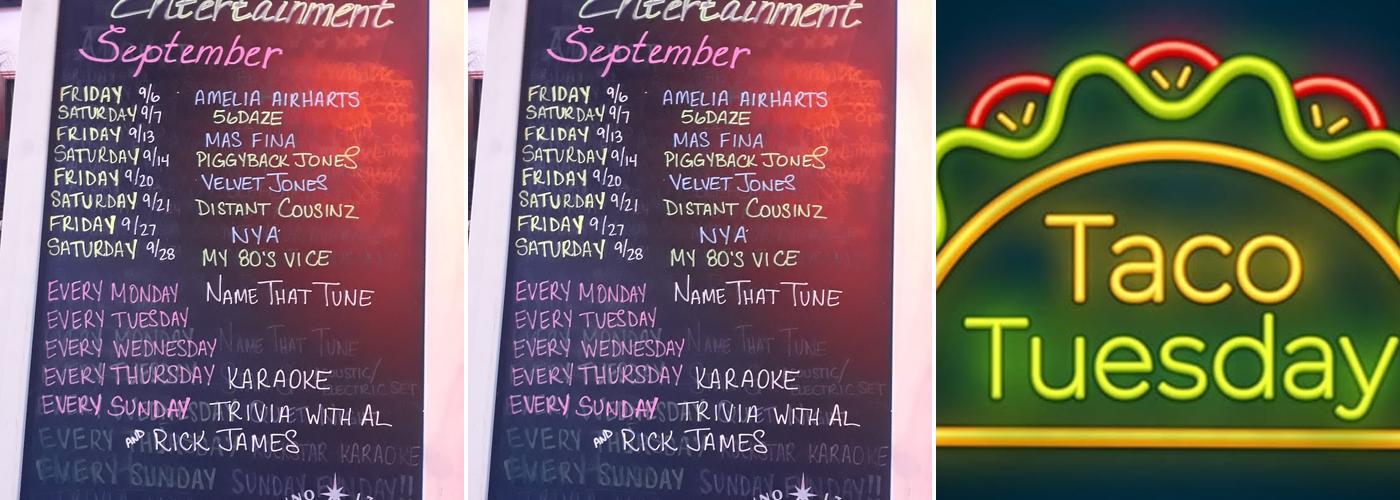 Entertainment
September
FRIDAY 9/6 AMELIA AIRHARTS
SATURDAY 9/7 56DAZE
FRIDAY 9/13 MAS FINA
SATURDAY 9/14 PIGGYBACK JONES
FRIDAY 9/20 VELVET JONES
SATURDAY 9/21 DISTANT COUSINZ
FRIDAY 9/27 NYA
SATURDAY 9/28 MY 80'S VICE
EVERY MONDAY NAME THAT TUNE
EVERY TUESDAY
EVERY WEDNESDAY NAME THAT TUNE
EVERY THURSDAY KARAOKE
ELECTRIC SET
EVERY SUNDAY TRIVIA WITH AL
AND RICK JAMES
EVERY ROCKSTAR KARAOKE
EVERY SUNDAY SUNDAY
Entertainment
September
FRIDAY 9/6 AMELIA AIRHARTS
SATURDAY 9/7 56DAZE
FRIDAY 9/13 MAS FINA
SATURDAY 9/14 PIGGYBACK JONES
FRIDAY 9/20 VELVET JONES
SATURDAY 9/21 DISTANT COUSINZ
FRIDAY 9/27 NYA
SATURDAY 9/28 MY 80'S VICE
EVERY MONDAY NAME THAT TUNE
EVERY TUESDAY
EVERY WEDNESDAY NAME THAT TUNE
EVERY THURSDAY KARAOKE
ELECTRIC SET
EVERY SUNDAY TRIVIA WITH AL
AND RICK JAMES
EVERY ROCKSTAR KARAOKE
EVERY SUNDAY SUNDAY
Taco
Tuesday